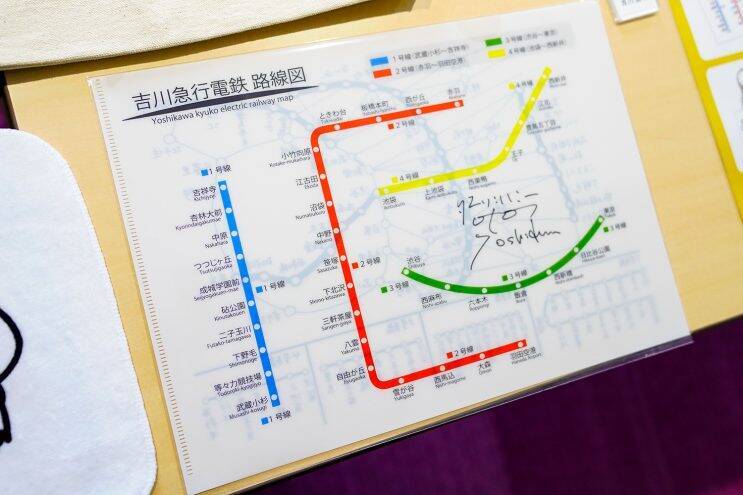 吉川急行電鉄 路線図
Yoshikawa kyuko electric railway map
1号線(武蔵小杉〜吉祥寺)
2号線(赤羽〜羽田空港)
3号線(渋谷〜東京)
4号線(池袋〜西新井)
1号線
吉祥寺
Kichijoji
杏林大前
Kyorindaigakumae
中原
Nakahara
つつじヶ丘
Tsutsujigaoka
成城学園前
Seijyogakuen-mae
1号線
砧公園
Kinutakouen
二子玉川
Futako-tamagawa
下野毛
Shimonoge
等々力競技場
Todoroki-kyogijyo
武蔵小杉
Musashi-kosugi
1号線
赤羽
Akabane
西が丘
Nishigaoka
板橋本町
Itabashi-honcho
ときわ台
Tokiwadai
2号線
小竹向原
Kotake-mukaihara
江古田
Ekoda
沼袋
Numabukuro
中野
Nakano
笹塚
Sasazuka
2号線
下北沢
Shimo-kitazawa
三軒茶屋
Sangen-jaya
八雲
Yakumo
自由が丘
Jiyugaoka
雪が谷
Yukigaya
西馬込
Nishi-magome
大森
Omori
羽田空港
Haneda Airport
2号線
4号線
池袋
Ikebukuro
上池袋
Kami-Ikebukuro
西巣鴨
Nishi-sugamo
王子
Oji
豊島五丁目
江北
Kohoku
西新井
Nishiarai
4号線
渋谷
Shibuya
3号線
西麻布
Nishi-azabu
六本木
Roppongi
3号線
飯倉
Iikura
西新橋
Nishi-shinbashi
日比谷公園
Hibiya-kōen
東京
Tokyo
3号線